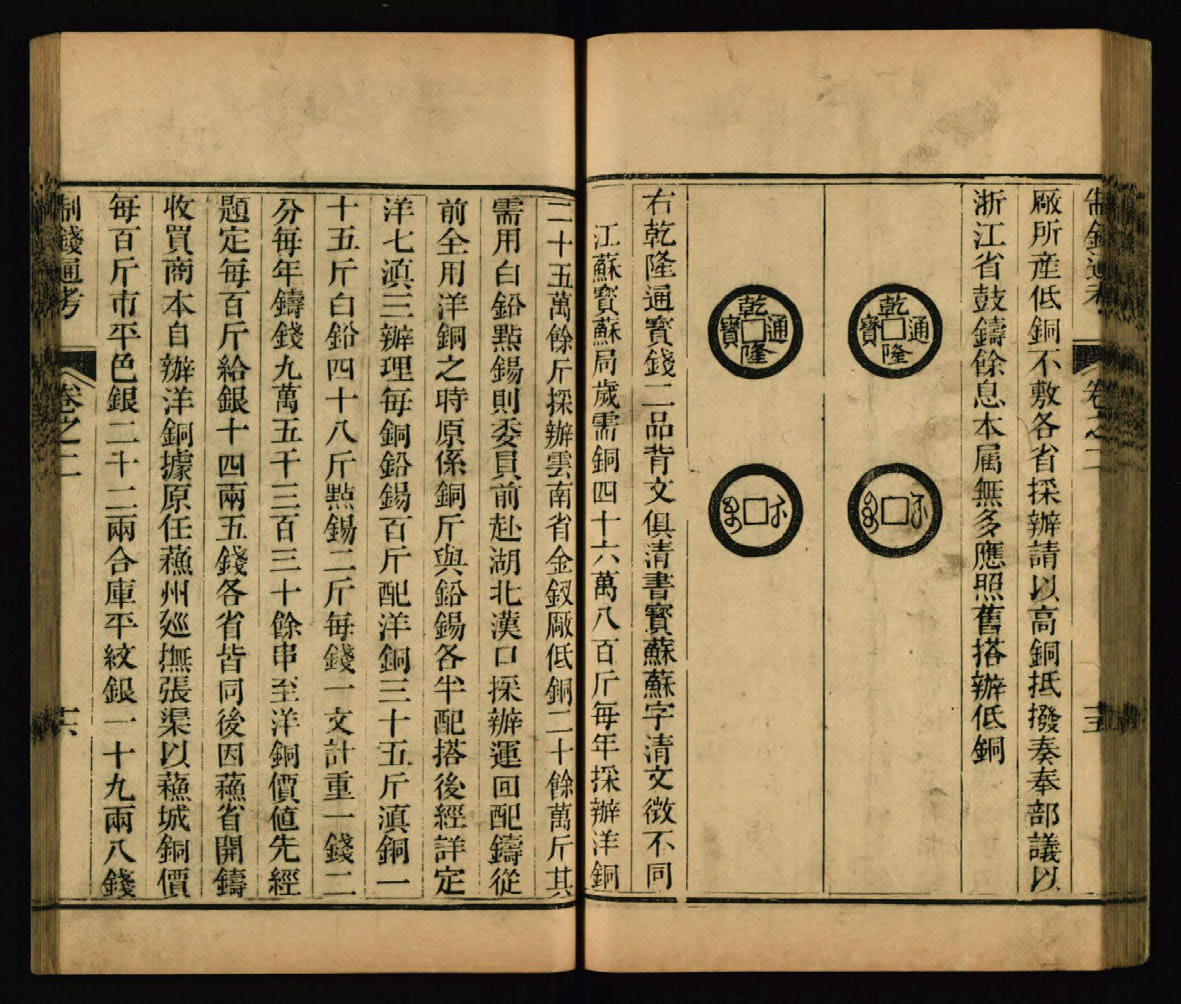 制錢通考
卷之二
廠所産低銅不敷各省採辦請以高銅抵撥奏奉部議以
浙江省鼓鑄餘息本属無多應照舊搭辦低銅
乾隆通寶
乾隆通寶
右乾隆通寶錢二品背文俱清書寳蘇蘇字清文微不同
江蘇寳蘇局歲需銅四十六萬八百斤每年採辦洋銅
二十五萬餘斤採辦雲南省金釵厰低銅二十餘萬斤其
需用白鉛㸃錫則委員前赴湖北漢口採辦運回配鑄從
前全用洋銅之時原係銅斤與鉛錫各半配搭後經詳定
洋七滇三辦理每銅鉛錫百斤配洋銅三十五斤滇銅一
十五斤白鉛四十八斤㸃錫二斤每錢一文計重一錢二
分每年鑄錢九萬五千三百三十餘串至洋銅價値先經
題定每百斤給銀十四兩五錢各省皆同後因蘓省開鑄
收買商本自辦洋銅據原任蘓州廵撫張渠以蘓城銅價
每百斤市平色銀二十二兩合庫平紋銀一十九兩八錢
制錢通考
卷之二
十六